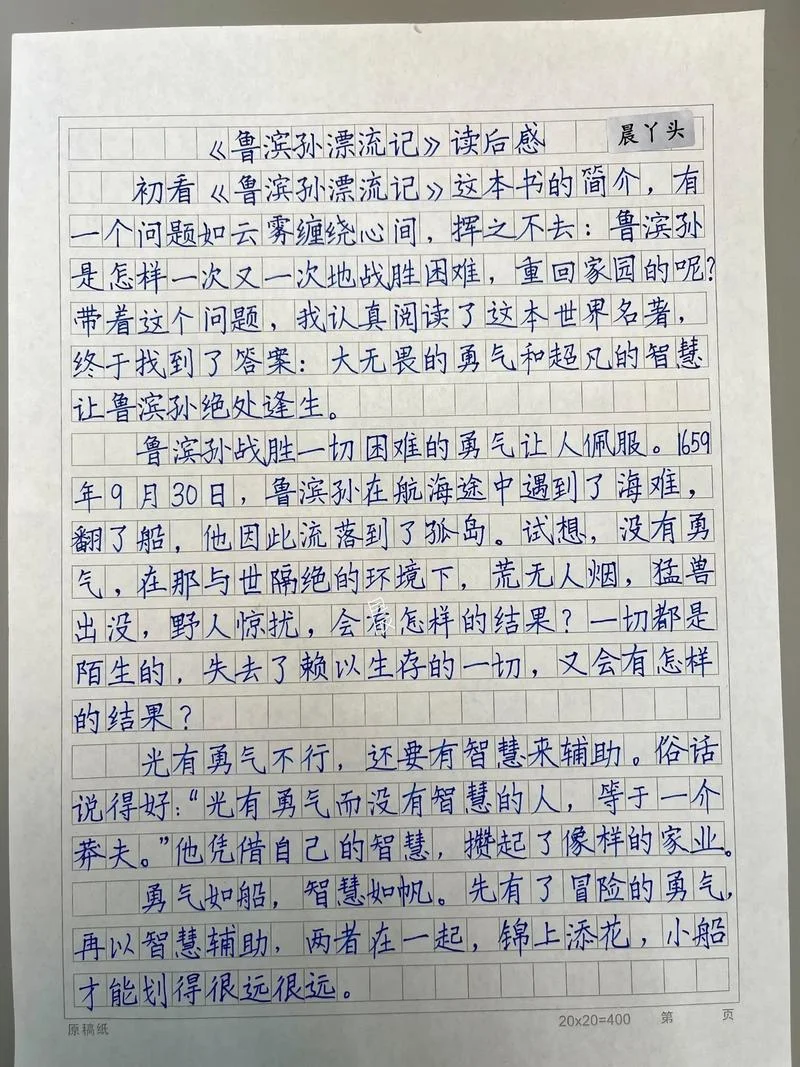 《鲁滨孙漂流记》读后感
晨丫头
初看《鲁滨孙漂流记》这本书的简介，有
一个问题如云雾缠绕心间，挥之不去：鲁滨孙
是怎样一次又一次地战胜困难，重回家园的呢？
带着这个问题，我认真阅读了这本世界名著，
终于找到了答案：大无畏的勇气和超凡的智慧
让鲁滨孙绝处逢生。
鲁滨孙战胜一切困难的勇气让人佩服。1659
年9月30日，鲁滨孙在航海途中遇到了海难，
翻了船，他因此流落到了孤岛。试想，没有勇
气，在那与世隔绝的环境下，荒无人烟，猛兽
出没，野人惊扰，会有怎样的结果？一切都是
陌生的，失去了赖以生存的一切，又会有怎样
的结果？
光有勇气不行，还要有智慧来辅助。俗话
说得好：“光有勇气而没有智慧的人，等于一介
莽夫。”他凭借自己的智慧，攒起了像样的家业。
勇气如船，智慧如帆。先有了冒险的勇气，
再以智慧辅助，两者在一起，锦上添花，小船
才能划得很远很远。
原稿纸
20x20=400 第 页